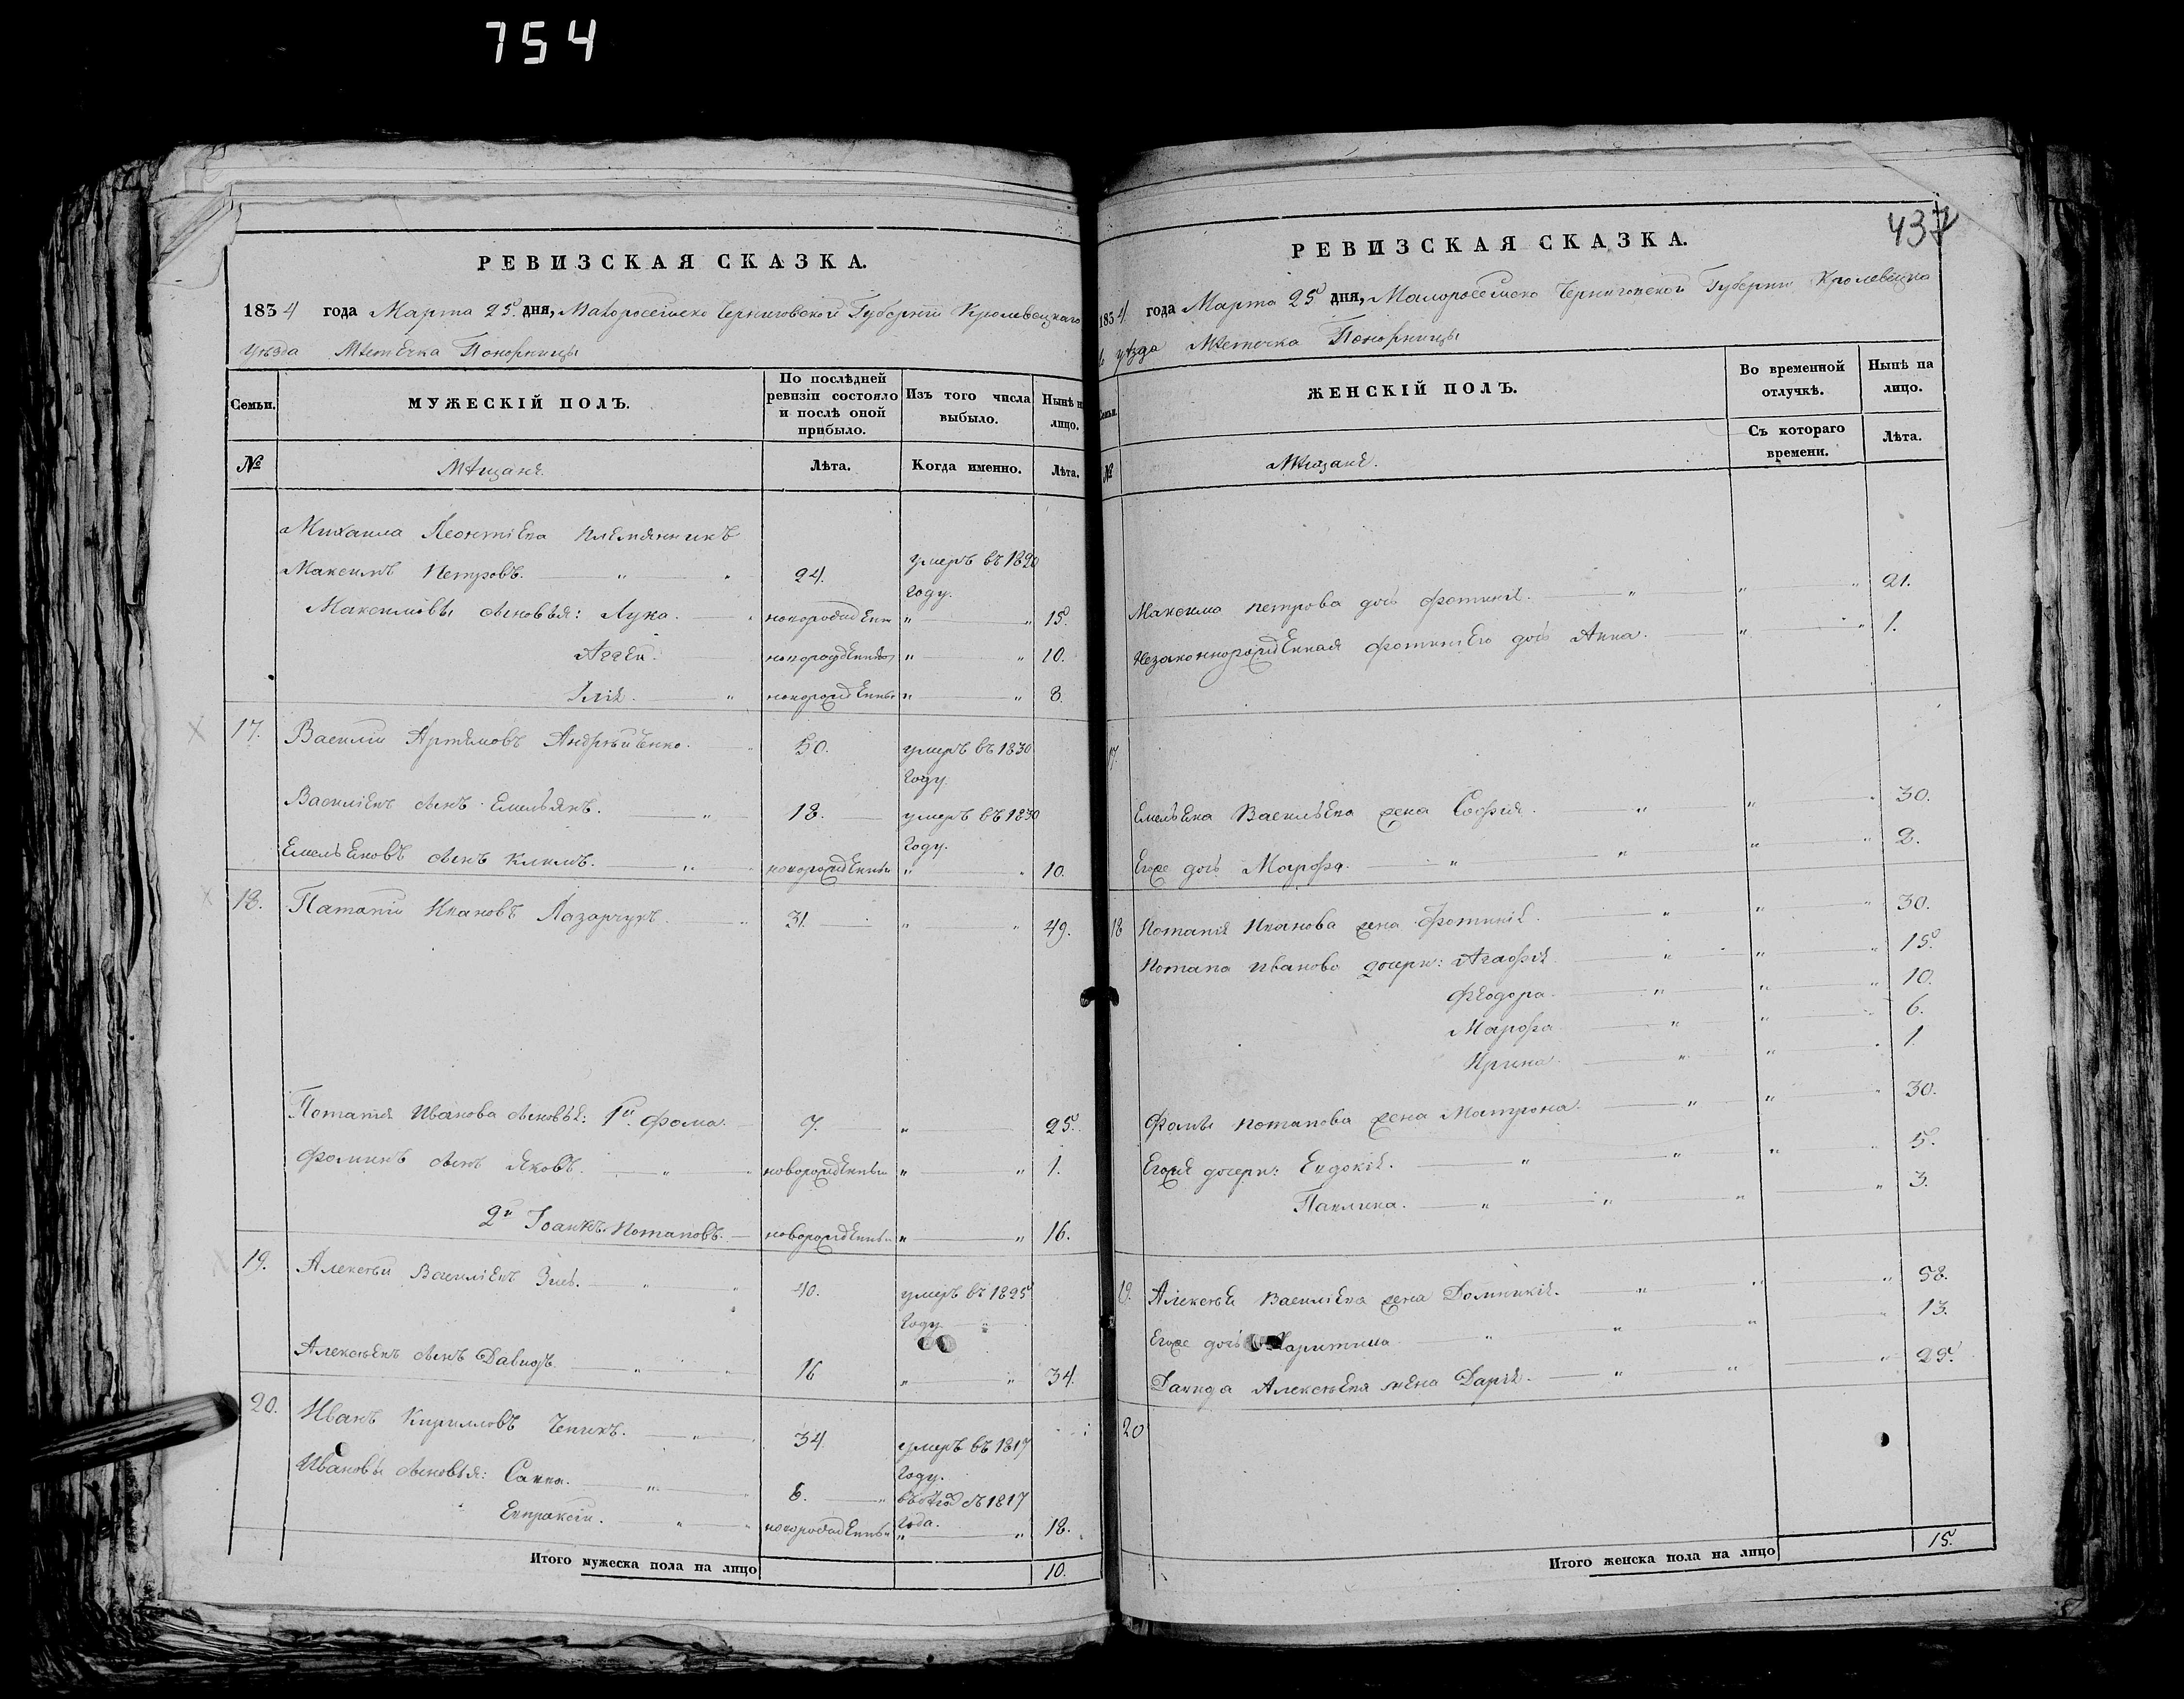 754
РЕВИЗСКАЯ СКАЗКА.
1834 года Марта 25 дня, Малороссійско Черниговской Губерніи Кролевецкаго
уѣзда Мѣстечка Понорницы
Семьи.
МУЖЕСКІЙ ПОЛЪ.
По послѣдней ревизіи состояло и послѣ оной прибыло.
Изъ того числа выбыло.
Нынѣ на лицо.
№
Мѣщане.
Лѣта.
Когда именно.
Лѣта.
Михаила Леонтіева племянникъ
Максимъ Петровъ. 24. умеръ въ 1820
году.
Максимовы сыновья: Лука. новорожденн 15.
Аггей. новорожденны 10.
Ілія. новорожденны 8.
17. Василій Артемовъ Андрѣйченко. 50. умеръ въ 1830
году.
Василіевъ сынъ Емельянъ. 18. умеръ въ 1830
году.
Емельяновъ сынъ Климъ. новорожденны 10.
18. Патапій Ивановъ Лазарчукъ. 31. 49.
Потапія Иванова сыновья: 1й Фома. 7. 25.
Фоминъ сынъ Яковъ. новорожденны 1.
2й Іоаннъ Потаповъ. новорожденны 16.
19. Алексѣй Василіевъ 40. умеръ въ 1825
году
Алексѣевъ сынъ Давидъ. 16 34.
20. Иванъ Кирилловъ Чепикъ. 34 умеръ въ 1817
году.
Ивановы сыновья: Савва. 8. 1817
года.
Евпраксій. новорожденны 18.
Итого мужеска пола на лицо 10.
437
РЕВИЗСКАЯ СКАЗКА.
1834 года Марта 25 дня, Малороссійско Черниговской Губерніи Кролевецка
уѣзда Мѣстечка Понорницы
Семьи.
ЖЕНСКІЙ ПОЛЪ.
Во временной отлучкѣ.
Нынѣ на лицо.
Съ котораго времени.
Лѣта.
№
Мѣщане.
Максима Петрова дочь Фотинія. 21.
Незаконнорожденная Фотиніею дочь Анна. 1.
17
Емельяна Васильева жена Софія. 30.
Егоже дочь Марфа. 2.
18 Потапія Иванова жена Фотинія. 30.
Потапа Иванова дочери: Агафія 15.
Феодора. 10.
Марфа 6.
Ирина. 1
Фомы Потапова жена Матрона. 30.
Егоже дочери: Евдокія. 5.
Павлина. 3.
19. Алексѣя Василіева жена Домникія. 58.
Егоже дочь Харитина 13.
Давида Алексѣева жена Дарія. 25.
20
Итого женска пола на лицо 15.